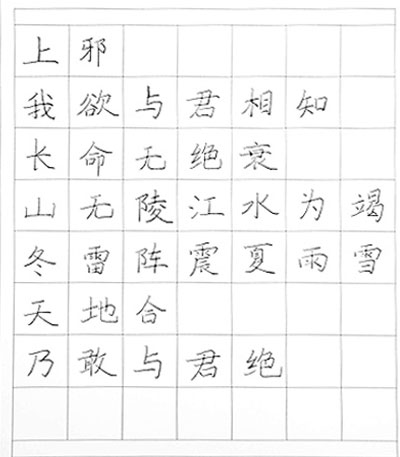 上邪
我欲与君相知
长命无绝衰
山无陵江水为竭
冬雷阵震夏雨雪
天地合
乃敢与君绝